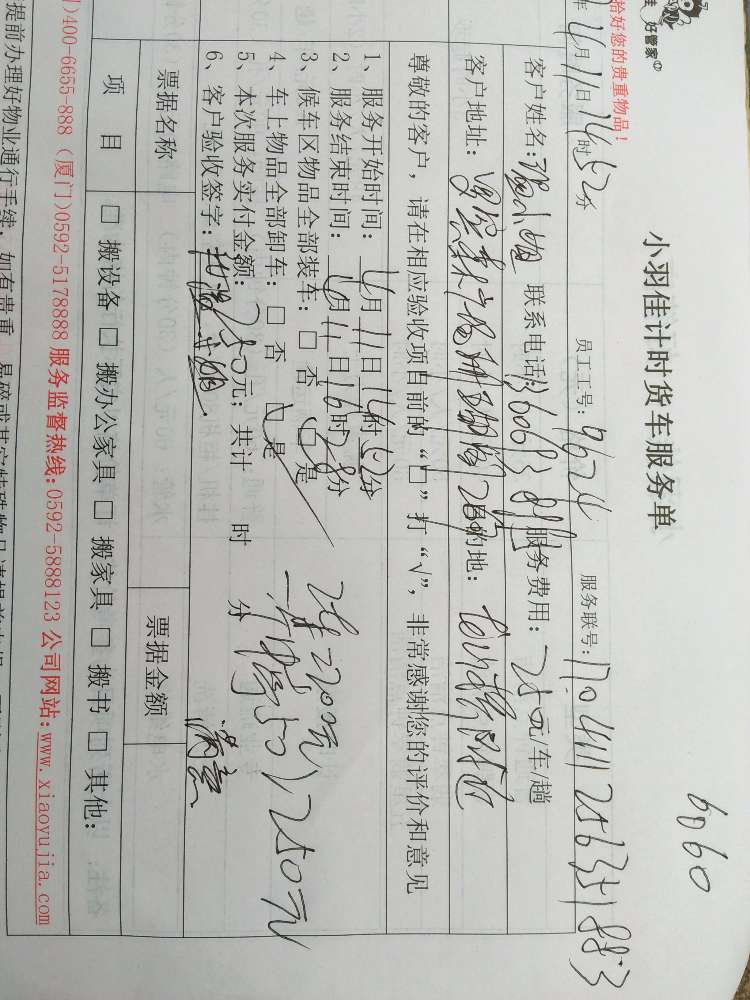 佳 好管家
恰好您的贵重物品！
6060
小羽佳计时货车服务单
年 4月11日14时52分 员工工号: 9624 服务联号:
客户姓名: 小姐 联系电话: 服务费用: 元/车/趟
客户地址: 的地:
尊敬的客户，请在相应验收项目前的“□”打“√”，非常感谢您的评价和意见
1、服务开始时间: 4月11日14时52分
2、服务结束时间: 4月11日16时28分
3、候车区物品全部装车: □ 否 □ 是
4、车上物品全部卸车: □ 否 □ 是
5、本次服务实付金额: 250元; 共计 时 分
6、客户验收签字:
250元
满意
票据名称 票据金额
项 目 □ 搬设备 □ 搬办公家具 □ 搬家具 □ 搬书 □ 其他:
)400-6655-888 (厦门)0592-5178888 服务监督热线:0592-5888123 公司网站:www.xiaoyujia.com
提前办理好物业通行手续，如有贵重、易碎或其它特殊物品请提前